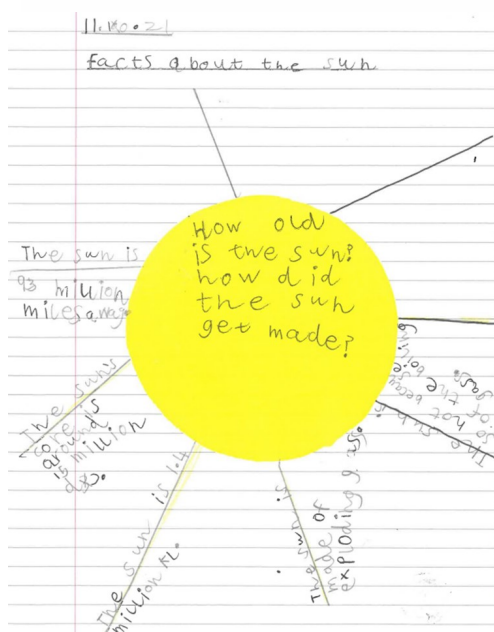 11.10.21
facts about the sun
How old
is the sun?
how did
the sun
get made?
The sun is
93 million
miles away.
The sun's
core is
around
15 million
The sun is 1.4
million
The sun is
made of
exploding
The sun is
so hot because
of the boiling
gass.